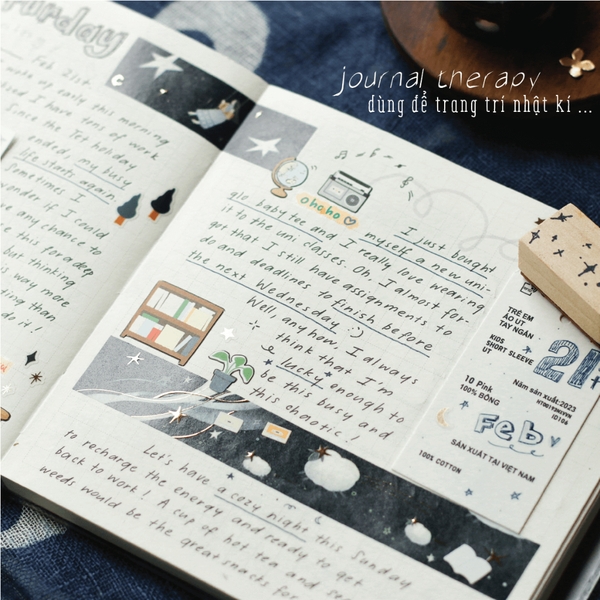 journal therapy
dùng để trang trí nhật kí ...
turday
Feb 21st.
up early this morning
and I have tons of work
Since the Tet holiday
ended, my busy
life starts again.
Sometimes I
wonder I could
any chance to
this for a deep
but thinking
is way more
thing than
do it!
ohoho
I just bought
myself a new uni-
glo baby tee and I really love wearing
it to the uni classes. Oh, I almost for-
get that I still have assignments to
do and deadlines to finish before
the next Wednesday :)
Well, anyhow, I always
think that I'm
lucky enough to
be this busy and
this chaotic!
Let's have a cozy night this Sunday
to recharge the energy and ready to get
back to work! A cup of hot tea and
weeds would be the great snacks for
TRẺ EM
ÁO ÚT
TAY NGẮN
KIDS
SHORT SLEEVE
UT
21
10 Pink
100% BÔNG
Năm sản xuất:2023
ID106
Feb
SẢN XUẤT TẠI VIỆT NAM
100% COTTON